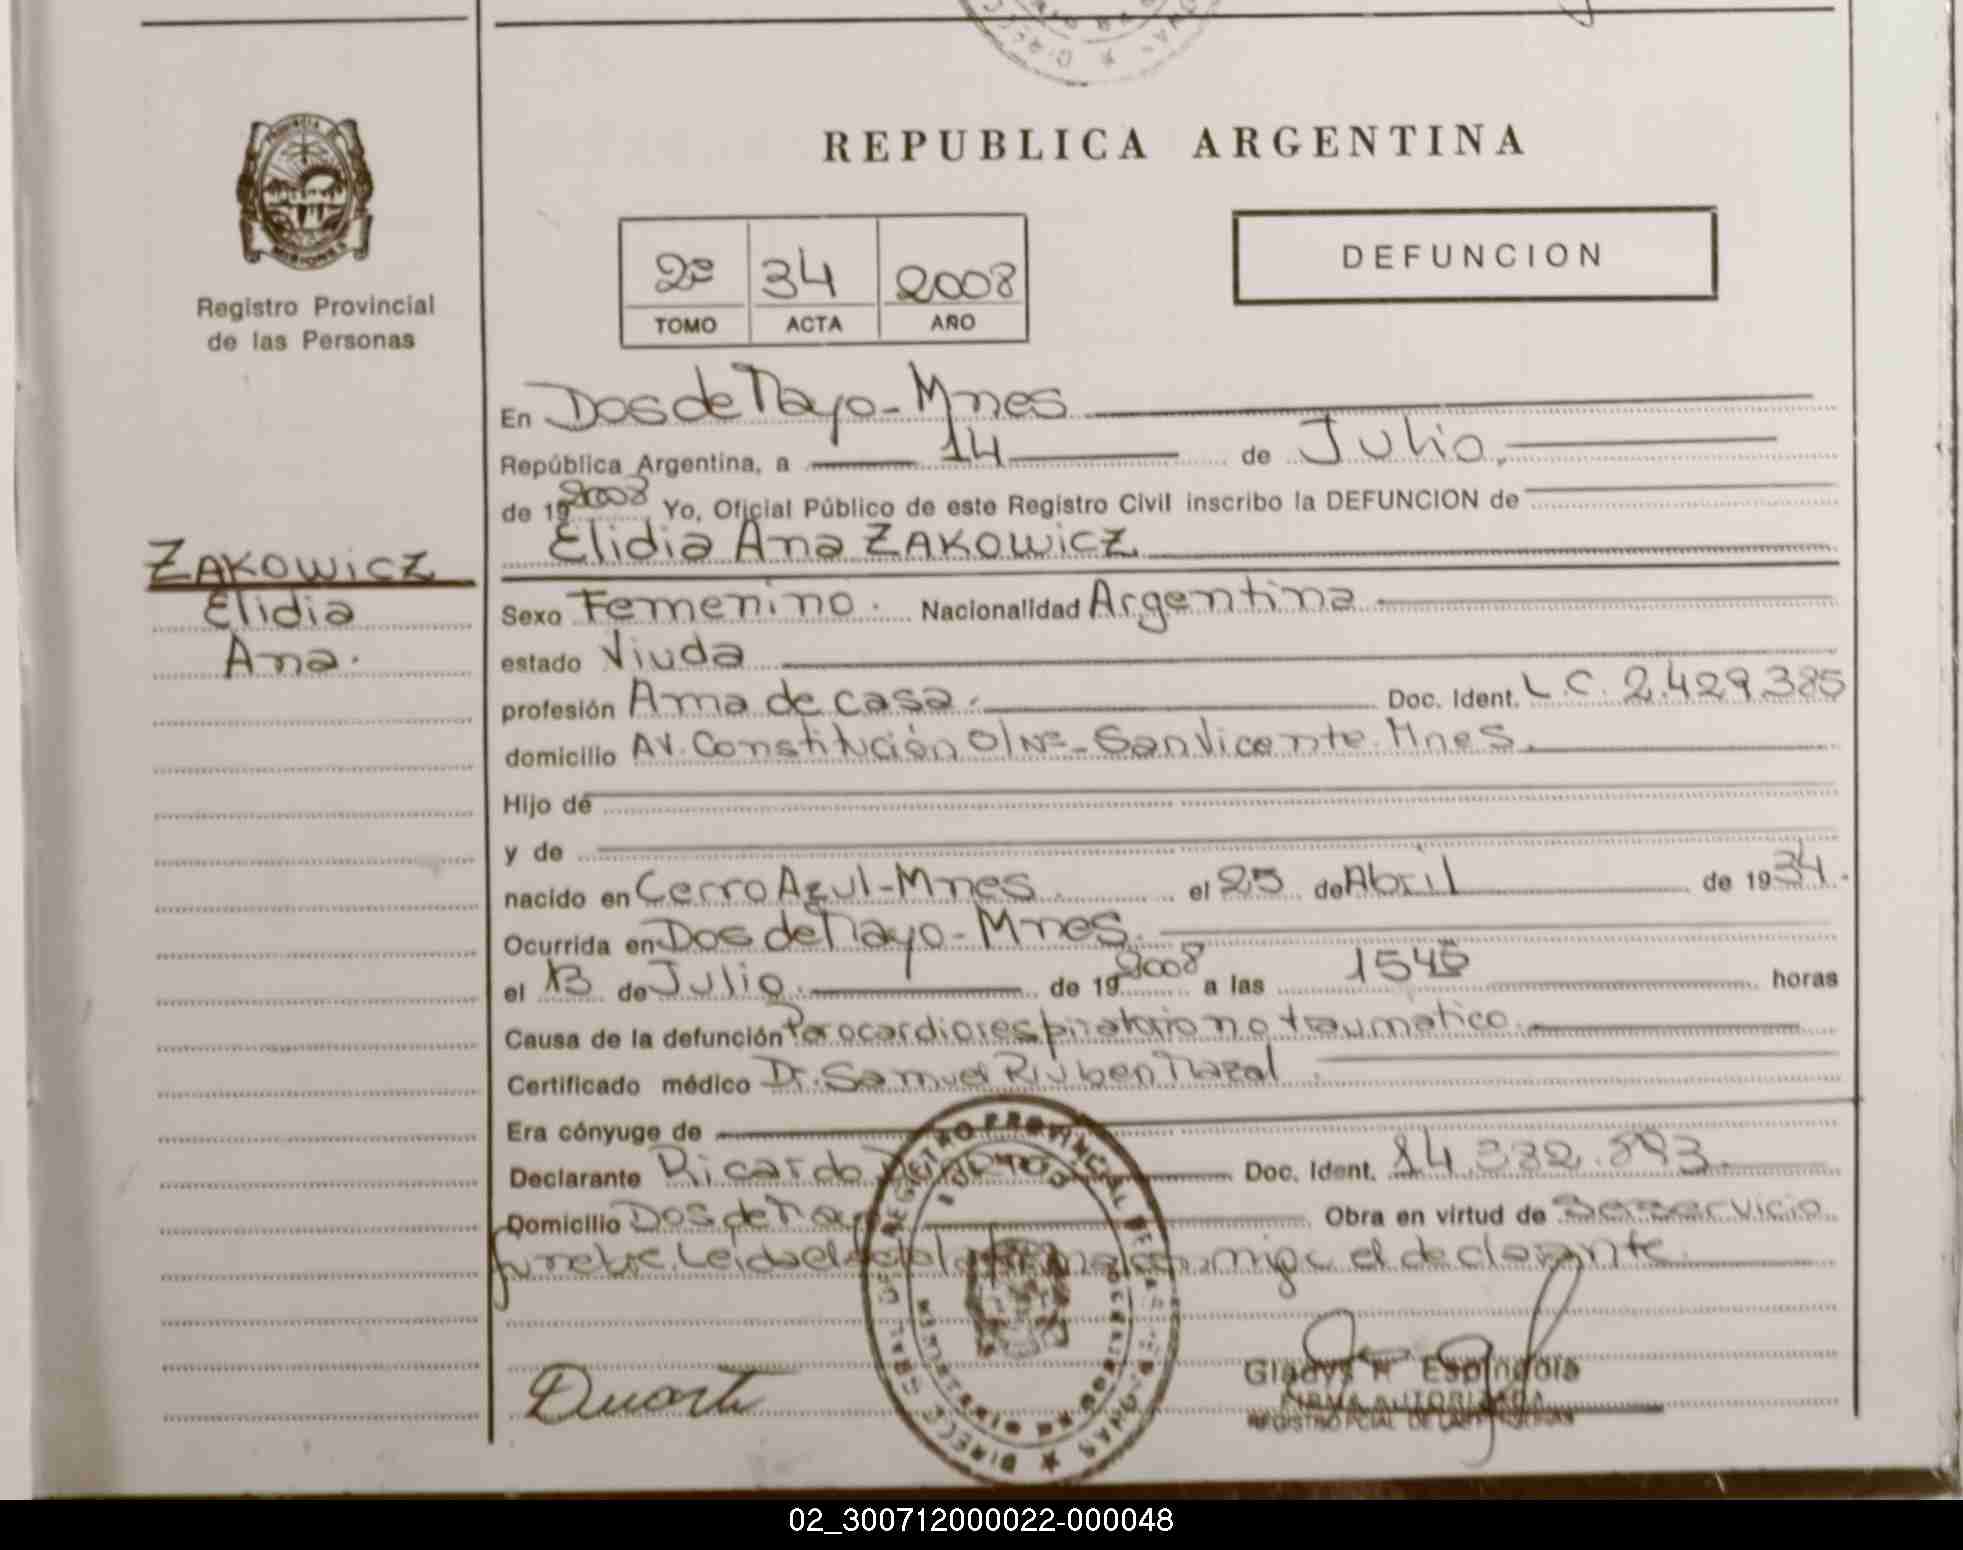 REPUBLICA ARGENTINA
DEFUNCION
2º 34 2008
TOMO ACTA AÑO
Registro Provincial
de las Personas
ZAKOWICZ
Elidia
Ana.
En Dos de Mayo-Mnes
República Argentina, a 14 de Julio.
de 19 2008 Yo, Oficial Público de este Registro Civil inscribo la DEFUNCION de
Elidia Ana ZAKOWICZ
Sexo Femenino. Nacionalidad Argentina
estado Viuda
profesión Ama de casa. Doc. Ident. L.C. 2.429.385
domicilio AV. Constitución S/Nº-San Vicente. Mnes.
Hijo de
y de
nacido en Cerro Azul-Mnes. el 25 de Abril de 1934.
Ocurrida en Dos de Mayo-Mnes.
el 13 de Julio. de 19 2008 a las 1545 horas
Causa de la defunción Parocardiorespiratorio no traumatico.
Certificado médico Dr. Samuel Ruben
Era cónyuge de
Declarante Ricardo Doc. Ident. 14.332.893.
Domicilio Dos de Mayo Obra en virtud de servicio
funebre. Leida el acta la firma conmigo el declarante.
Duarte
Gladys Espindola
FIRMA AUTORIZADA
REGISTRO PCIAL. DE LAS PERSONAS
02_300712000022-000048